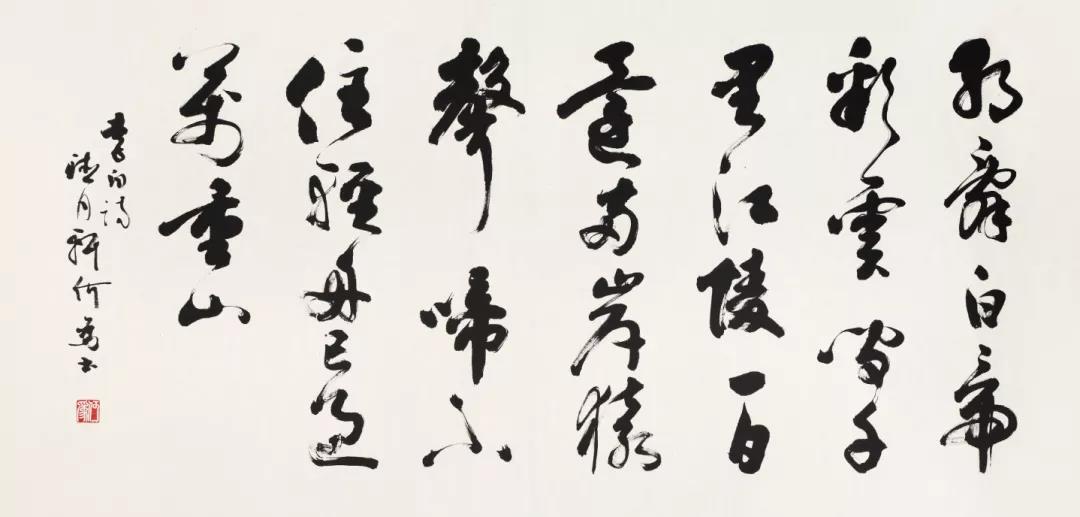 朝辭白帝
彩雲間千
里江陵一日
還兩岸猿
聲啼不
住輕舟已過
萬重山
李白詩
月軒何書